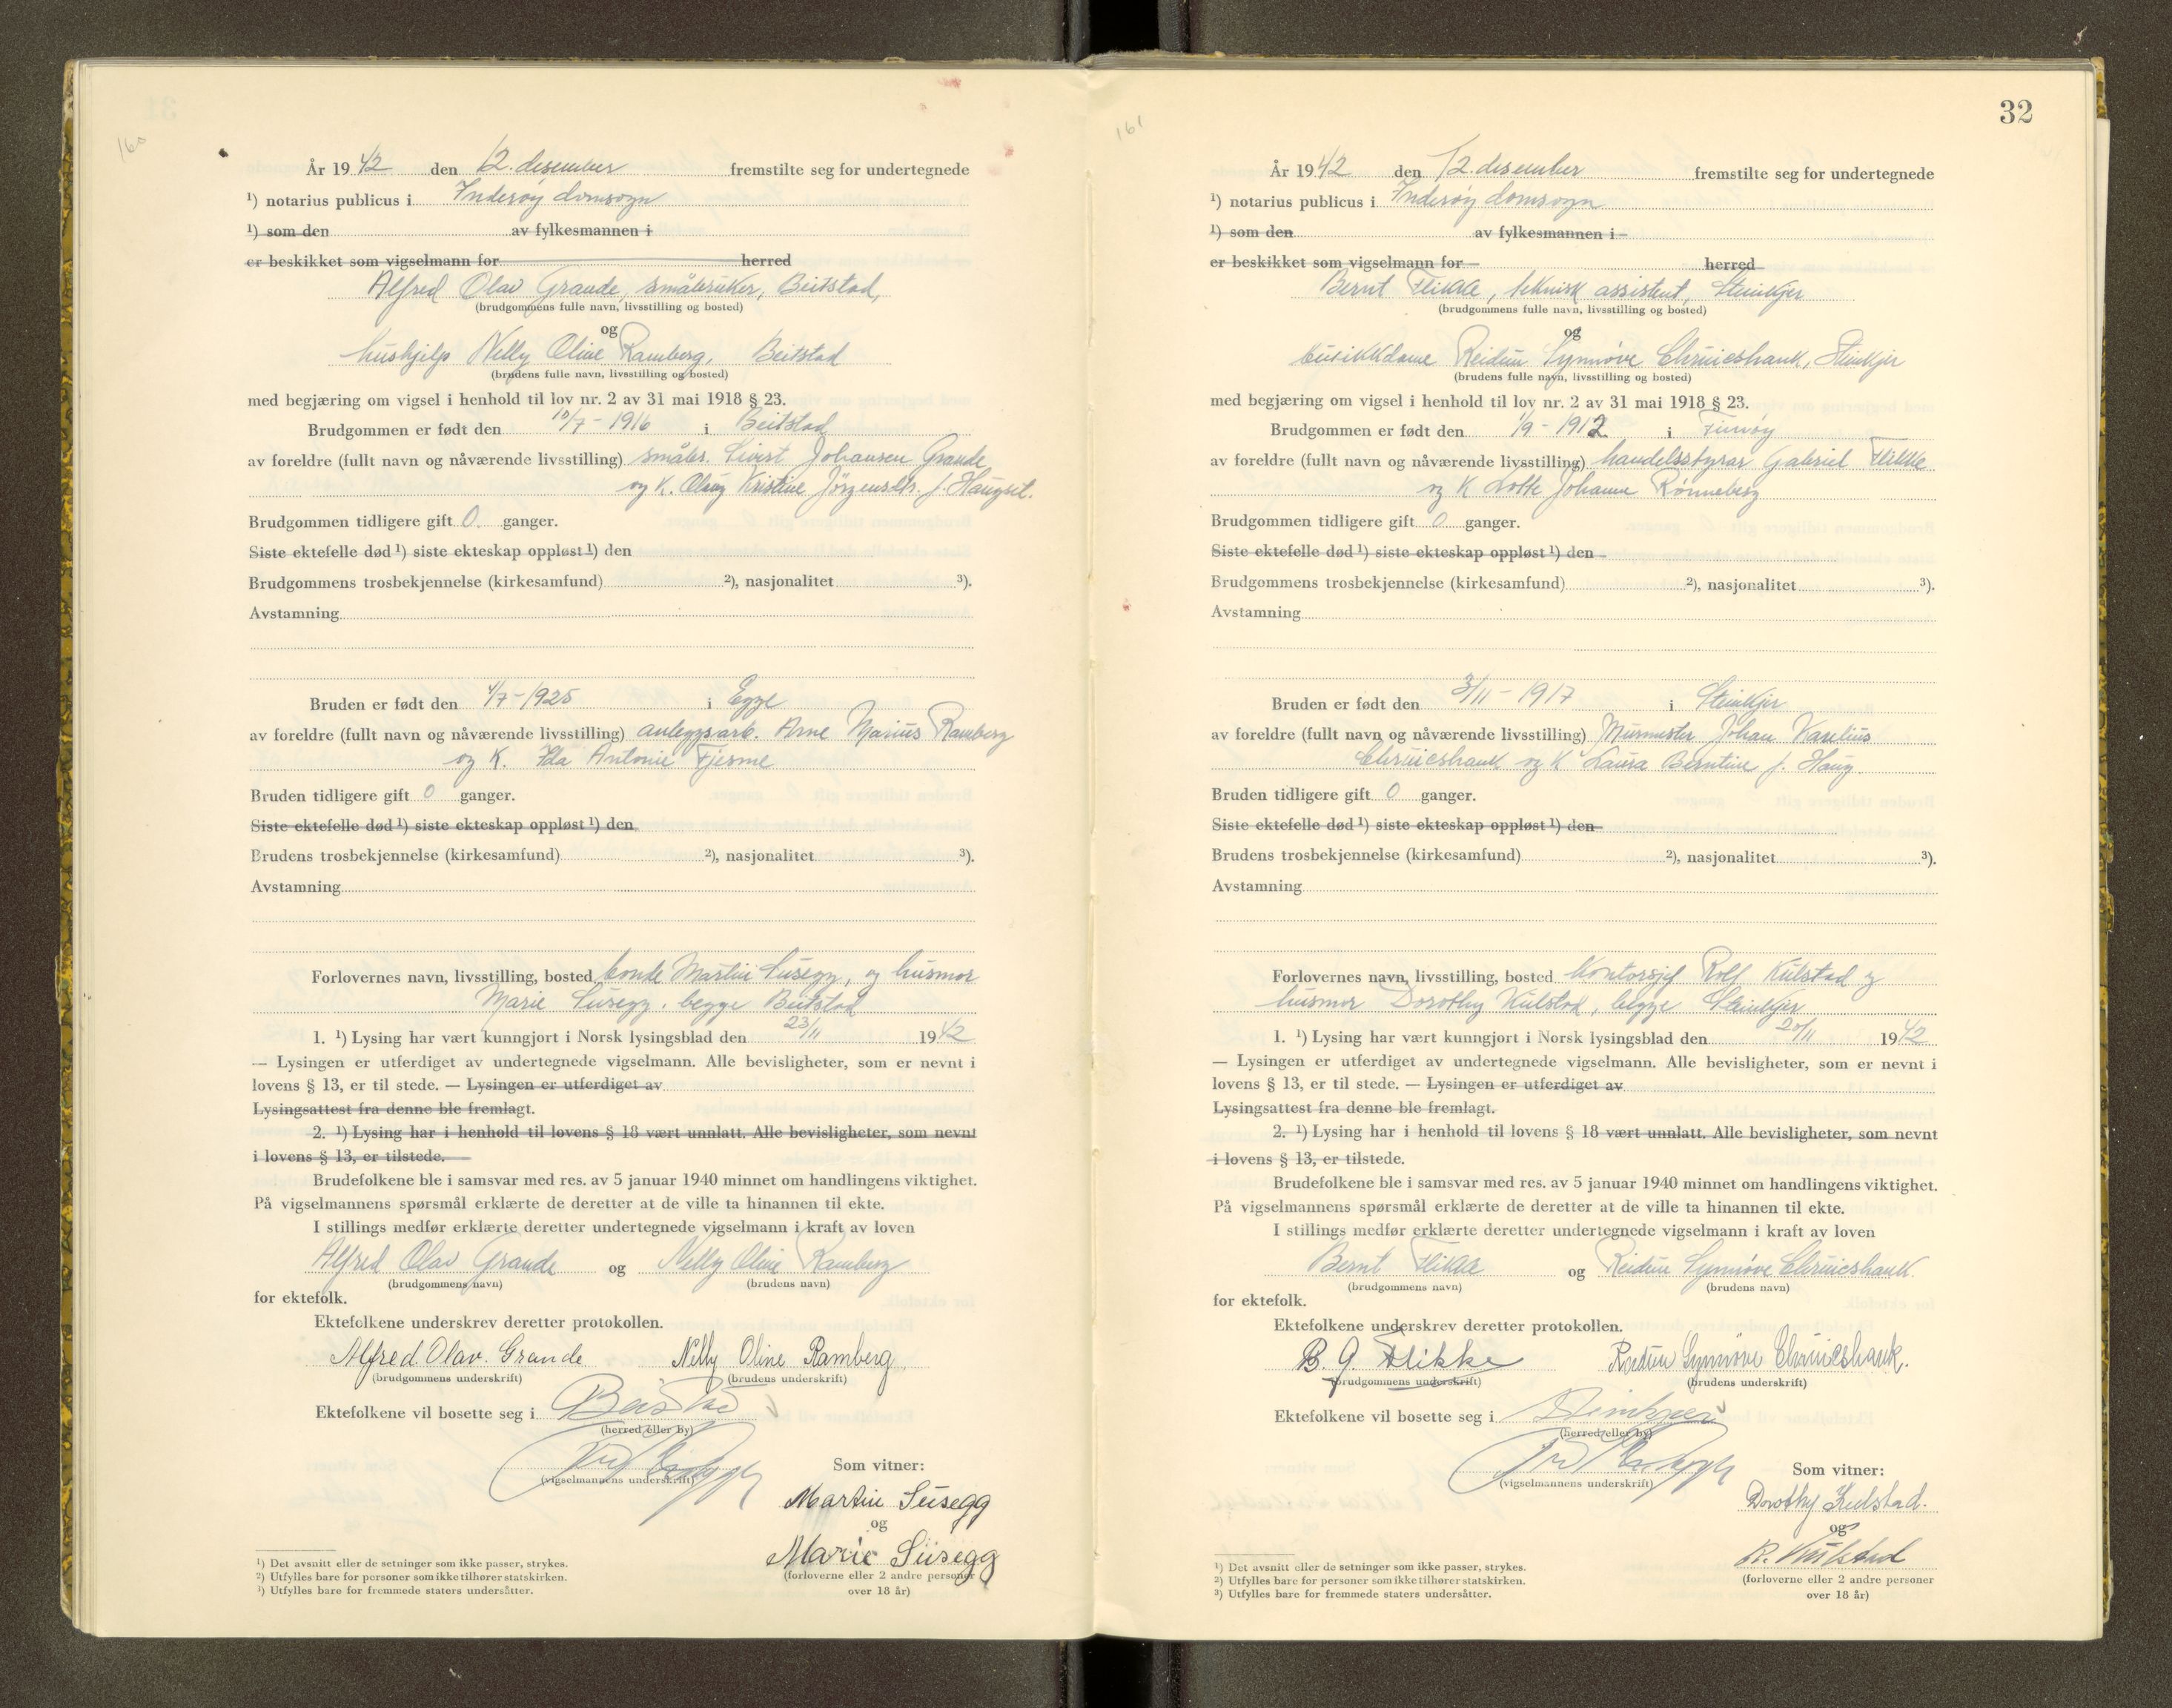 160
År 1942 den 12. desember fremstilte seg for undertegnede
¹) notarius publicus i Inderøy domsogn
¹) som den av fylkesmannen i
er beskikket som vigselmann for herred
Alfred Olav Grande, småbruker, Beitstad,
(brudgommens fulle navn, livsstilling og bosted)
og
hushjelp Nelly Oline Ramberg, Beitstad
(brudens fulle navn, livsstilling og bosted)
med begjæring om vigsel i henhold til lov nr. 2 av 31 mai 1918 § 23.
Brudgommen er født den 10/7-1916 i Beitstad
av foreldre (fullt navn og nåværende livsstilling) småbr. Sivert Johansen Grande
og K. Olaug Kristine Jörgensdtr. f. Haugset.
Brudgommen tidligere gift 0. ganger.
Siste ektefelle død ¹) siste ekteskap oppløst ¹) den
Brudgommens trosbekjennelse (kirkesamfund) ²), nasjonalitet ³).
Avstamning
Bruden er født den 4/7-1925 i Egge
av foreldre (fullt navn og nåværende livsstilling) anleggsarb. Arne Marius Ramberg
og K. Ida Antonie Fjesme
Bruden tidligere gift 0 ganger.
Siste ektefelle død ¹) siste ekteskap oppløst ¹) den
Brudens trosbekjennelse (kirkesamfund) ²), nasjonalitet ³).
Avstamning
Forlovernes navn, livsstilling, bosted bonde Martin Susegg, og husmor
Marie Susegg, begge Beitstad
1. ¹) Lysing har vært kunngjort i Norsk lysingsblad den 23/11 1942
— Lysingen er utferdiget av undertegnede vigselmann. Alle bevisligheter, som er nevnt i
lovens § 13, er til stede. — Lysingen er utferdiget av
Lysingsattest fra denne ble fremlagt.
2. ¹) Lysing har i henhold til lovens § 18 vært unnlatt. Alle bevisligheter, som nevnt
i lovens § 13, er tilstede.
Brudefolkene ble i samsvar med res. av 5 januar 1940 minnet om handlingens viktighet.
På vigselmannens spørsmål erklærte de deretter at de ville ta hinannen til ekte.
I stillings medfør erklærte deretter undertegnede vigselmann i kraft av loven
Alfred Olav Grande og Nelly Oline Ramberg
(brudgommens navn) (brudens navn)
for ektefolk.
Ektefolkene underskrev deretter protokollen.
Alfred Olav. Grande Nelly Oline Ramberg
(brudgommens underskrift) (brudens underskrift)
Ektefolkene vil bosette seg i Beitstad
(herred eller by)
(vigselmannens underskrift)
Som vitner:
Martin Susegg
og
Marie Susegg
(forloverne eller 2 andre personer
over 18 år)
¹) Det avsnitt eller de setninger som ikke passer, strykes.
²) Utfylles bare for personer som ikke tilhører statskirken.
³) Utfylles bare for fremmede staters undersåtter.
161
32
År 1942 den 12. desember fremstilte seg for undertegnede
¹) notarius publicus i Inderøy domsogn
¹) som den av fylkesmannen i
er beskikket som vigselmann for herred
Bernt Flikke, teknisk assistent, Steinkjer
(brudgommens fulle navn, livsstilling og bosted)
og
butikkdame Reidun Synnøve Chruicshank, Steinkjer
(brudens fulle navn, livsstilling og bosted)
med begjæring om vigsel i henhold til lov nr. 2 av 31 mai 1918 § 23.
Brudgommen er født den 1/9-1912 i
av foreldre (fullt navn og nåværende livsstilling) handelsstyrar Gabriel Flikke
og K Lotte Johanne Rønneberg
Brudgommen tidligere gift 0 ganger.
Siste ektefelle død ¹) siste ekteskap oppløst ¹) den
Brudgommens trosbekjennelse (kirkesamfund) ²), nasjonalitet ³).
Avstamning
Bruden er født den 3/11-1917 i Steinkjer
av foreldre (fullt navn og nåværende livsstilling) Murmester Johan Karelius
Chruicshank og K Laura Berntine f. Haug
Bruden tidligere gift 0 ganger.
Siste ektefelle død ¹) siste ekteskap oppløst ¹) den
Brudens trosbekjennelse (kirkesamfund) ²), nasjonalitet ³).
Avstamning
Forlovernes navn, livsstilling, bosted kontorsjef Rolf Kulstad og
husmor Dorothy Kulstad, begge Steinkjer
1. ¹) Lysing har vært kunngjort i Norsk lysingsblad den 20/11 1942
— Lysingen er utferdiget av undertegnede vigselmann. Alle bevisligheter, som er nevnt i
lovens § 13, er til stede. — Lysingen er utferdiget av
Lysingsattest fra denne ble fremlagt.
2. ¹) Lysing har i henhold til lovens § 18 vært unnlatt. Alle bevisligheter, som nevnt
i lovens § 13, er tilstede.
Brudefolkene ble i samsvar med res. av 5 januar 1940 minnet om handlingens viktighet.
På vigselmannens spørsmål erklærte de deretter at de ville ta hinannen til ekte.
I stillings medfør erklærte deretter undertegnede vigselmann i kraft av loven
Bernt Flikke og Reidun Synnøve Chruicshank.
(brudgommens navn) (brudens navn)
for ektefolk.
Ektefolkene underskrev deretter protokollen.
B. G. Flikke Reidun Synnøve Chruicshank.
(brudgommens underskrift) (brudens underskrift)
Ektefolkene vil bosette seg i Steinkjer
(herred eller by)
(vigselmannens underskrift)
Som vitner:
Dorothy Kulstad.
og
R. Kulstad
(forloverne eller 2 andre personer
over 18 år)
¹) Det avsnitt eller de setninger som ikke passer, strykes.
²) Utfylles bare for personer som ikke tilhører statskirken.
³) Utfylles bare for fremmede staters undersåtter.